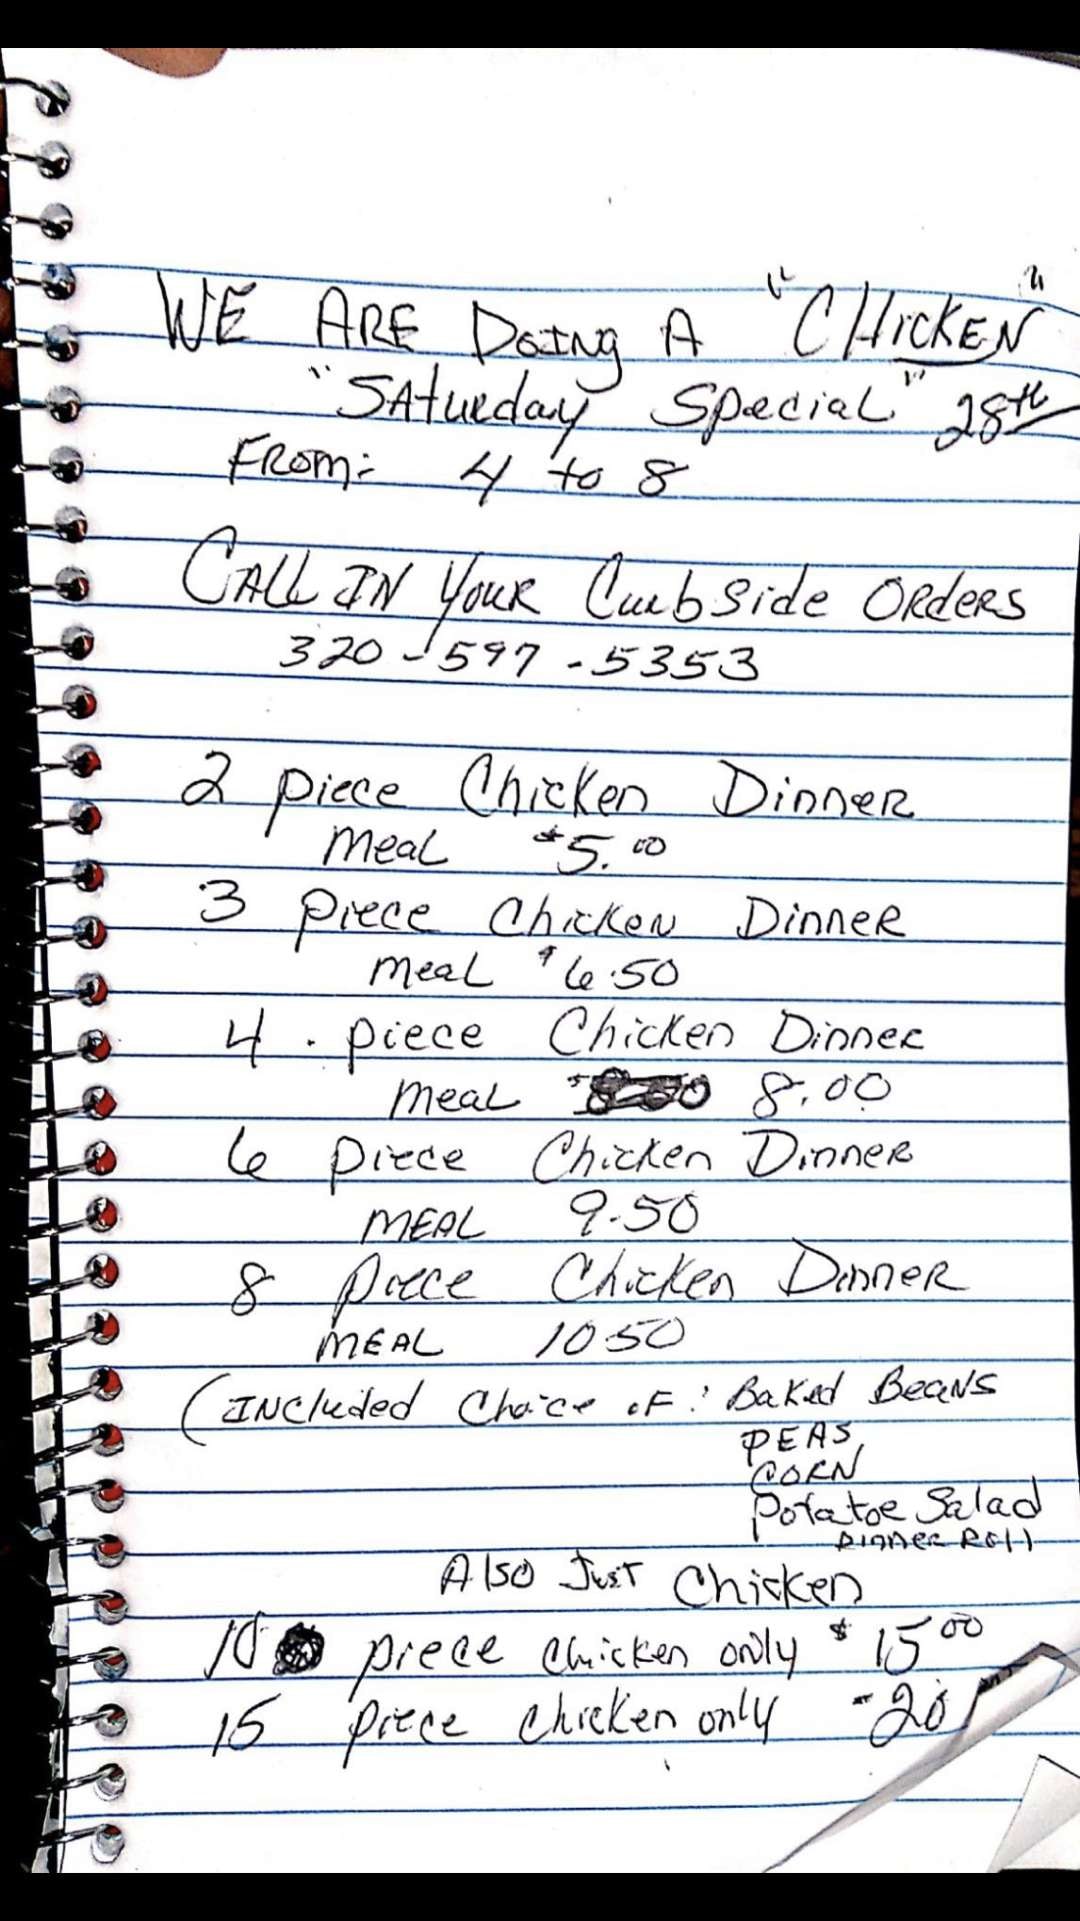 WE ARE DOING A "CHICKEN"
"SATURDAY SPECIAL" 28th
FROM: 4 to 8
CALL IN YOUR Curbside ORDERS
320-597-5353
2 piece Chicken Dinner
meal $5.00
3 piece Chicken Dinner
meal $6.50
4. piece Chicken Dinner
meal 8.00
6 piece Chicken Dinner
MEAL 9.50
8 piece Chicken Dinner
MEAL 10.50
(INCluded Choice of: Baked Beans
PEAS,
CORN
Potatoe Salad
Dinner Roll
Also Just Chicken
10 piece chicken only $15.00
15 piece chicken only -20